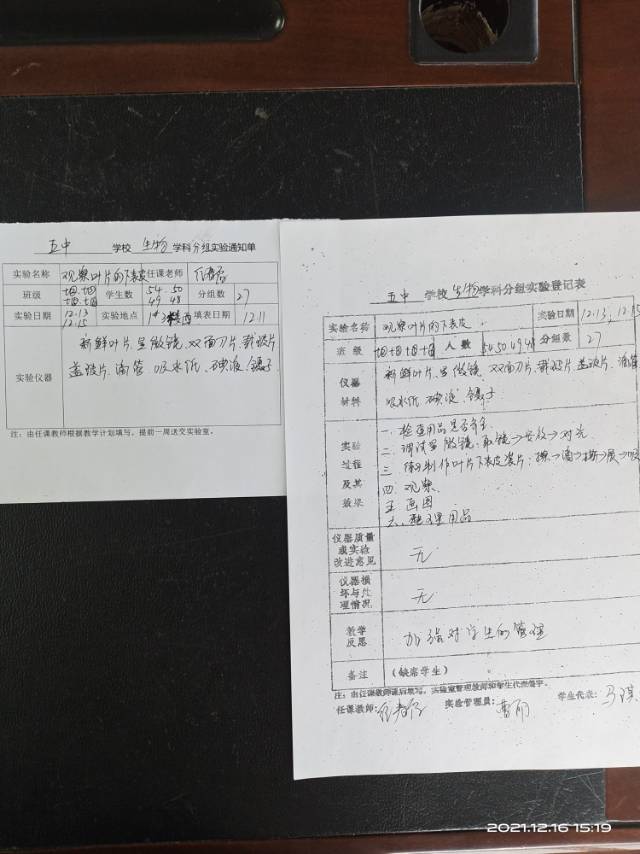 五中 学校 生物 学科分组实验通知单
实验名称 观察叶片的下表皮 任课老师
班级 学生数 54 50 49 48 分组数 27
实验日期 12.13 12.15 实验地点 填表日期 12.11
实验仪器 新鲜叶片 显微镜 双面刀片 载玻片
盖玻片 滴管 吸水纸 碘液 镊子
注：由任课教师根据教学计划填写，提前一周送交实验室。
五中 学校 生物 学科分组实验登记表
实验名称 观察叶片的下表皮 实验日期 12.13, 12.15
班级 人数 54 50 49 48 分组数 27
仪器材料 新鲜叶片 显微镜 双面刀片 载玻片 盖玻片 滴管
吸水纸 碘液 镊子
实验过程及其效果
一 检查用品是否齐全
二 调试显微镜：取镜→安放→对光
三 制作叶片下表皮装片：擦→滴→撕→展→
四 观察
五 画图
六 整理用品
仪器质量或实验改进意见 无
仪器损坏与处理情况 无
教学反思 加强对学生的管理
备注 （缺席学生）
注：由任课教师课后填写，实验室管理教师和学生代表签字。
任课教师： 实验管理员： 学生代表：
2021.12.16 15:19